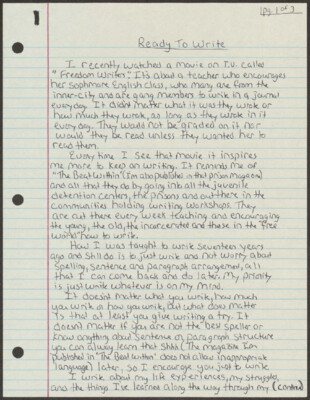 1
pg 1 of 7
Ready To Write
I recently watched a movie on T.V. called
"Freedom Writers". It's about a teacher who encourages
her sophmore English class, who many are from the
inner-city and are gang members to write in a journal
everyday. It didn't matter what it was they wrote or
how much they wrote, as long as they wrote in it
every day. They would not be graded on it nor
would they be read unless they wanted her to
read them.
Every time I see that movie it inspires
me more to keep on writing. It reminds me of
"The Beat Within" (I'm also published in that prison magazine)
and all that they do by going into all the juvenile
detention centers, the prisons and out there in the
communities holding writing workshops. They
are out there every week teaching and encouraging
the young, the old, the incarcerated and those in the "free
world" how to write.
How I was taught to write seventeen years
ago and still do is to just write and not worry about
spelling, sentence and paragraph arrangement, all
that I can come back and do later. My priority
is just write whatever is on my mind.
It doesnt matter what you write, how much
you write or how you write, but what does matter
is that at least you give writing a try. It
doesnt matter if you are not the best speller or
know anything about sentence or paragraph structure
you can always learn that shhh (The magazine I'm
published in "The Beat Within" does not allow inappropriate
language) later, so I encourage you just to write.
I write about my life experiences, my struggles,
and the things I've learned along the way through my